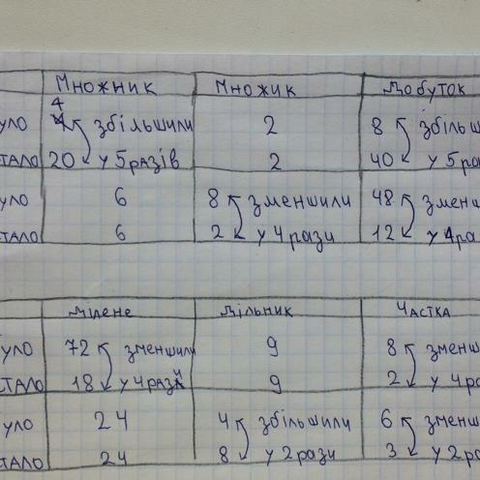 Множник Множик Добуток
уло 4 збільшили 2 8 збільш
стало 20 у 5разів 2 40 у 5ра
уло 6 8 зменшили 48 змен
стало 6 2 у 4 рази 12 у 4ра
Ділене Дільник Частка
уло 72 зменшили 9 8 зменш
стало 18 у 4рази 9 2 у 4ра
уло 24 4 збільшили 6 зменш
стало 24 8 у 2рази 3 у 2ра